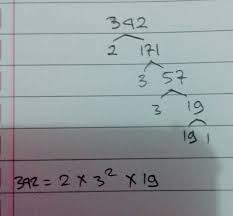 342
2 171
3 57
3 19
19 1
342 = 2 × 3² × 19